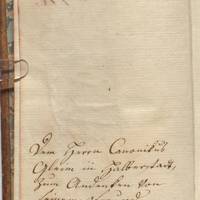 Dem Herrn Canonikus
Gleim in Halberstadt,
zum Andenken von